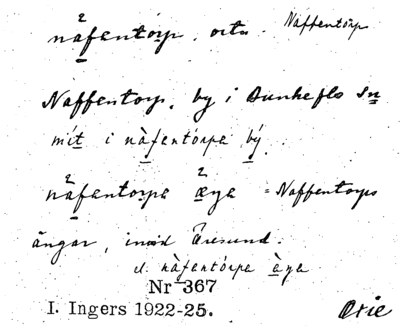 nàfentòrp, ortn. Naffentorp
Naffentorp, by i Bunkeflo sn
mít i nàfentórpa bý.
nàfentorpa æya = Naffentorps
ängar, invid Öresund.
el. nàfentórpa àya
Nr 367
I. Ingers 1922-25. Oxie